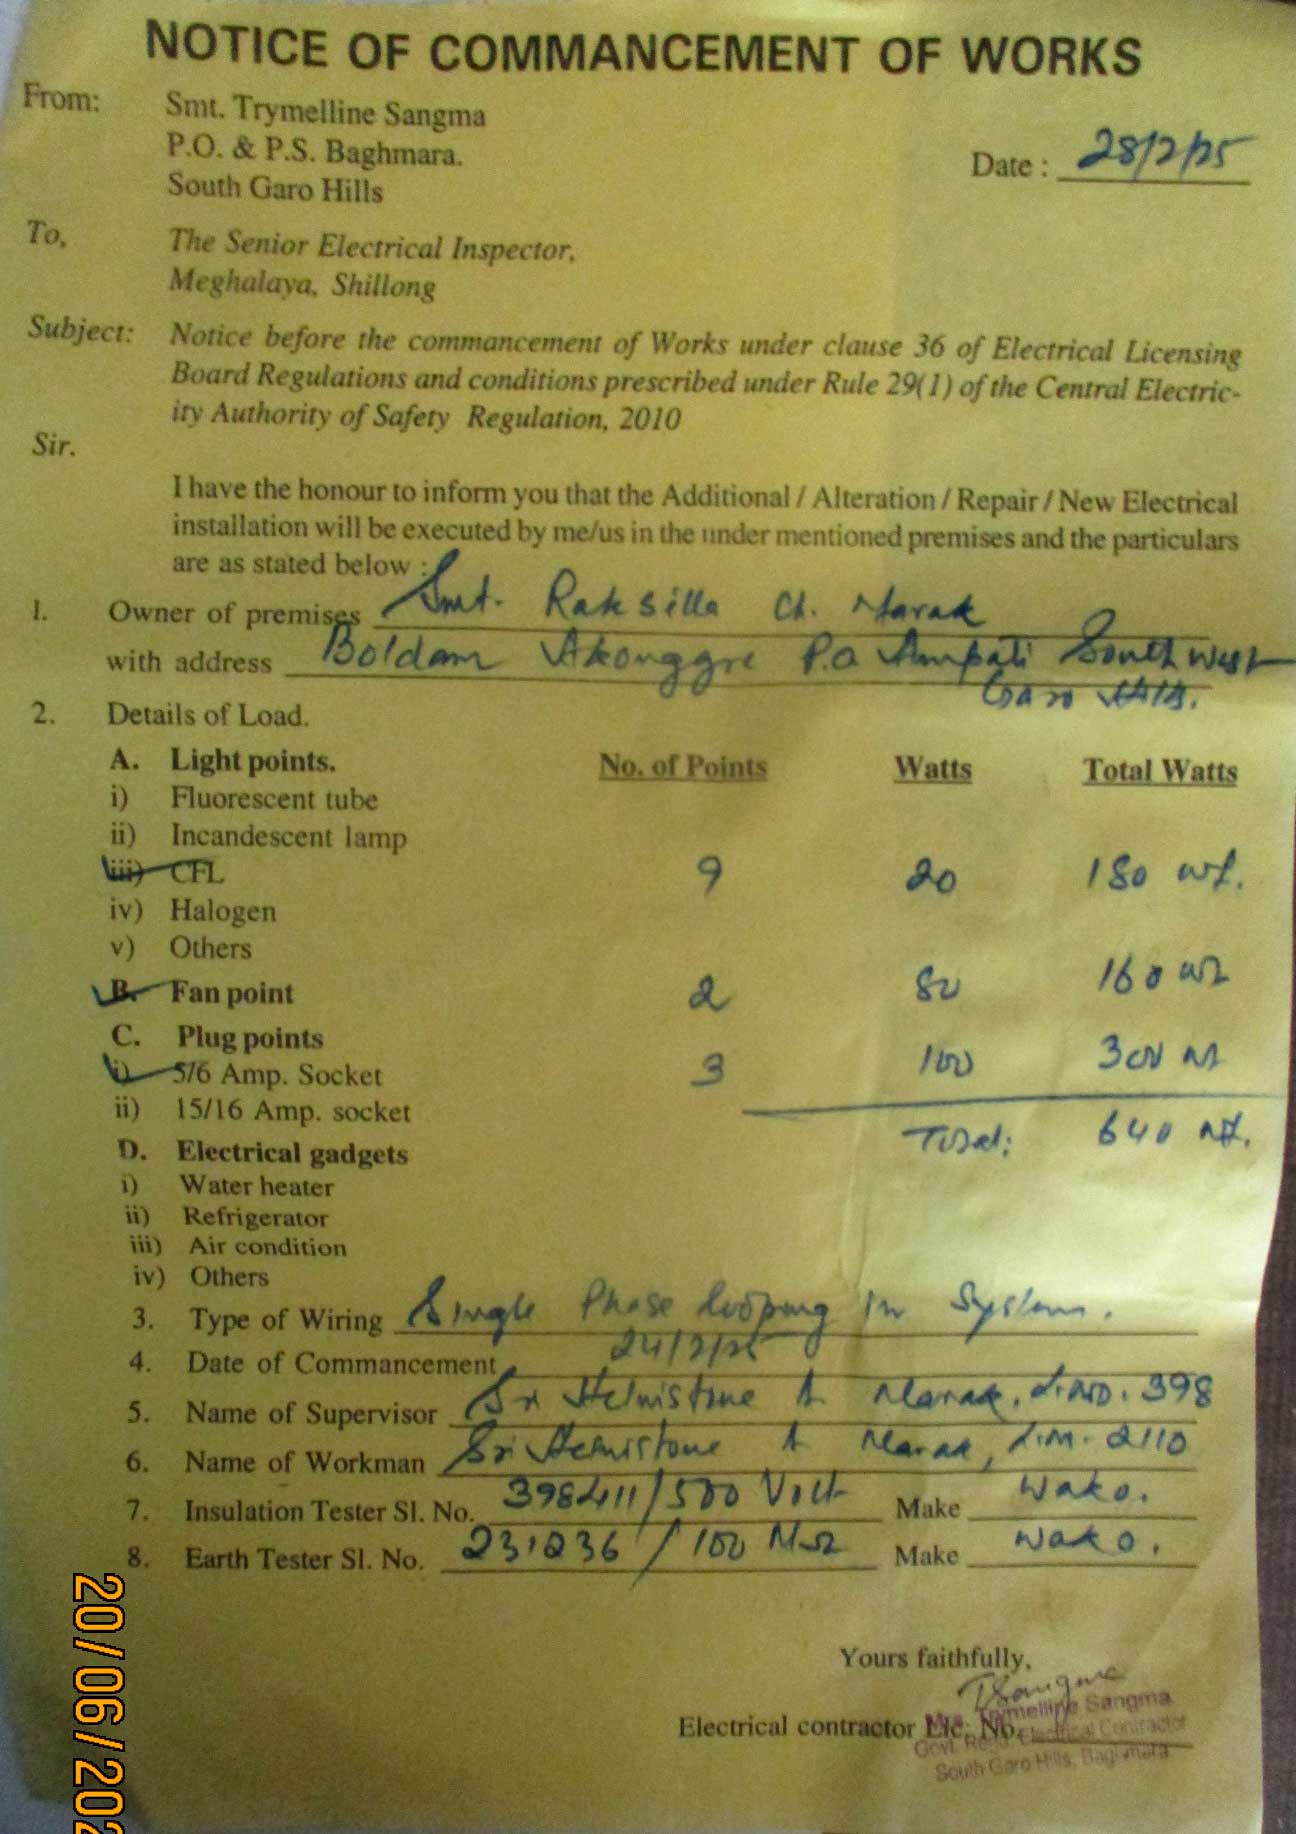 NOTICE OF COMMANCEMENT OF WORKS
From: Smt. Trymelline Sangma
P.O. & P.S. Baghmara.
South Garo Hills
Date : 28/2/25
To, The Senior Electrical Inspector,
Meghalaya, Shillong
Subject: Notice before the commancement of Works under clause 36 of Electrical Licensing
Board Regulations and conditions prescribed under Rule 29(1) of the Central Electric-
ity Authority of Safety Regulation, 2010
Sir.
I have the honour to inform you that the Additional / Alteration / Repair / New Electrical
installation will be executed by me/us in the under mentioned premises and the particulars
are as stated below :
1. Owner of premises Smt. Raksilla Ch. Marak
with address Boldam Akonggre P.O Ampati South West
Garo Hills.
2. Details of Load.
A. Light points. No. of Points Watts Total Watts
i) Fluorescent tube
ii) Incandescent lamp
iii) CFL 9 20 180 wt.
iv) Halogen
v) Others
B. Fan point 2 80 160 wt
C. Plug points
i) 5/6 Amp. Socket 3 100 300 wt
ii) 15/16 Amp. socket
Total: 640 wt.
D. Electrical gadgets
i) Water heater
ii) Refrigerator
iii) Air condition
iv) Others
3. Type of Wiring Single Phase looping in System.
4. Date of Commancement 24/2/25
5. Name of Supervisor Sri Helmistone A Marak, L.No. 398
6. Name of Workman Sri Helmistone A Marak, 2110
7. Insulation Tester Sl. No. 398411/500 Volt Make Wako.
8. Earth Tester Sl. No. 231236 / 100 Make Wako.
Yours faithfully,
TSangma
Electrical contractor Lic. No.
Mrs. Trymelline Sangma
Govt. Regd. Electrical Contractor
South Garo Hills, Baghmara
20/06/202